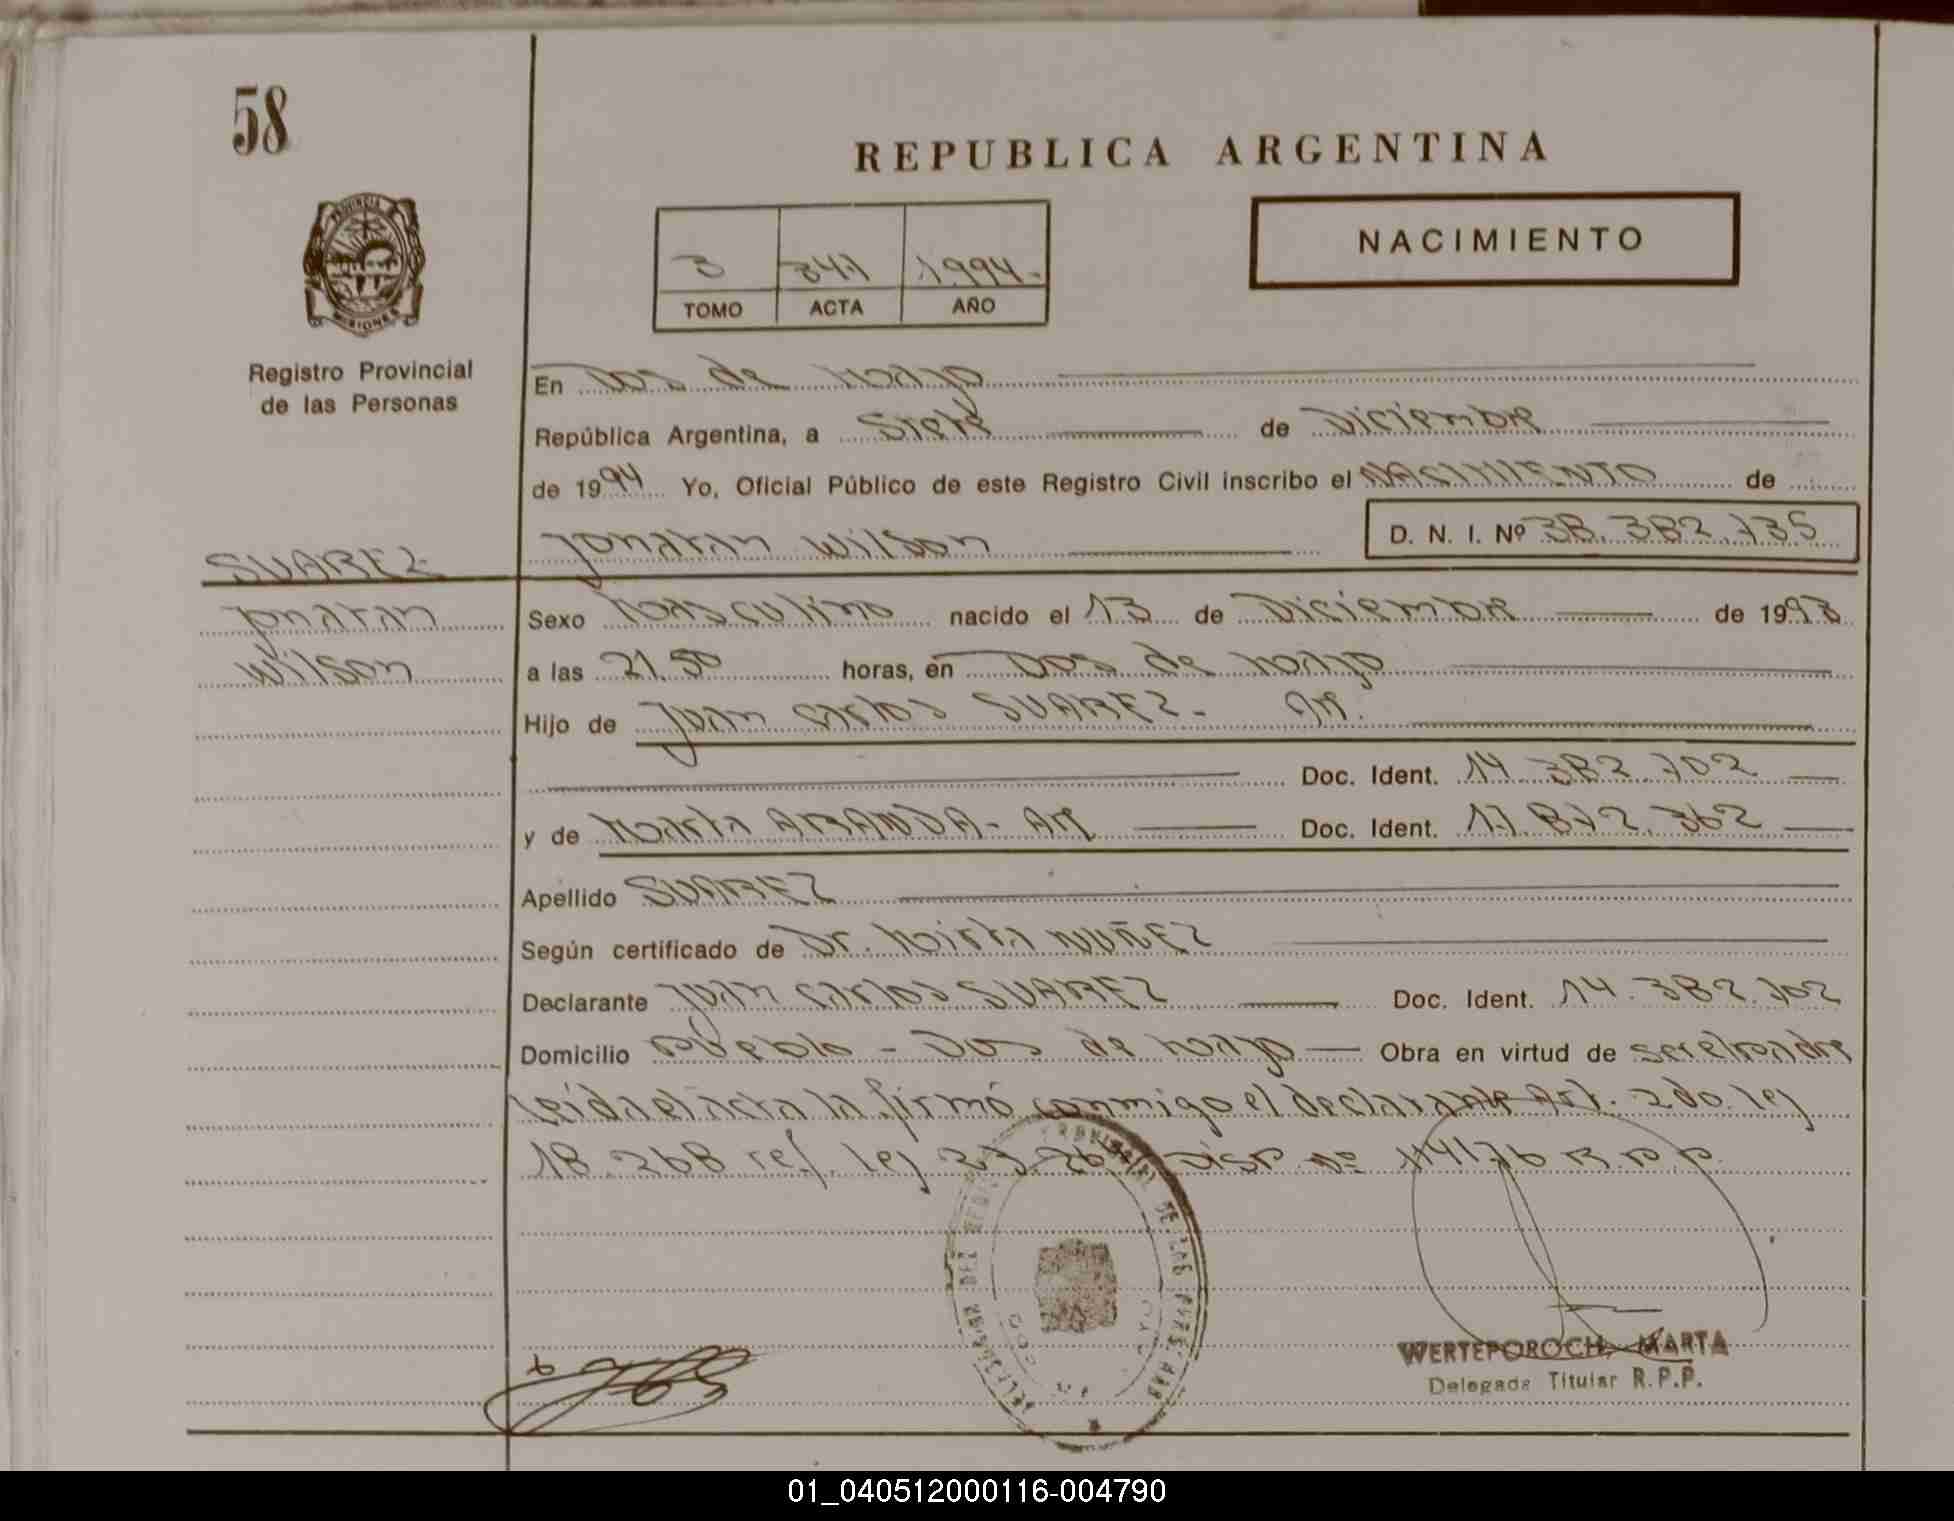 58
REPUBLICA ARGENTINA
NACIMIENTO
3 341 1994.-
TOMO ACTA AÑO
PROVINCIA
MISIONES
Registro Provincial
de las Personas
En Dos de Mayo
República Argentina, a Siete de Diciembre
de 1994 Yo, Oficial Público de este Registro Civil inscribo el NACIMIENTO de
Jonatan Wilson D. N. I. Nº 38.382.735
SUAREZ
Jonatan
Wilson
Sexo Masculino nacido el 13 de Diciembre de 1993
a las 21.50 horas, en Dos de Mayo
Hijo de Juan Carlos SUAREZ- Arg.
Doc. Ident. 14.382.702
y de Marta ARANDA- Arg Doc. Ident. 17.872.362
Apellido SUAREZ
Según certificado de Dr. Mirta NUÑEZ
Declarante Juan Carlos SUAREZ Doc. Ident. 14.382.702
Domicilio Pueblo - Dos de Mayo Obra en virtud de ser el padre
Leida el acta la firmó conmigo el declarante Art. 2do. ley
18.268 ref. ley Disp. Nº 114/76 R.P.P.
WERTEPOROCH, MARTA
Delegada Titular R.P.P.
01_040512000116-004790